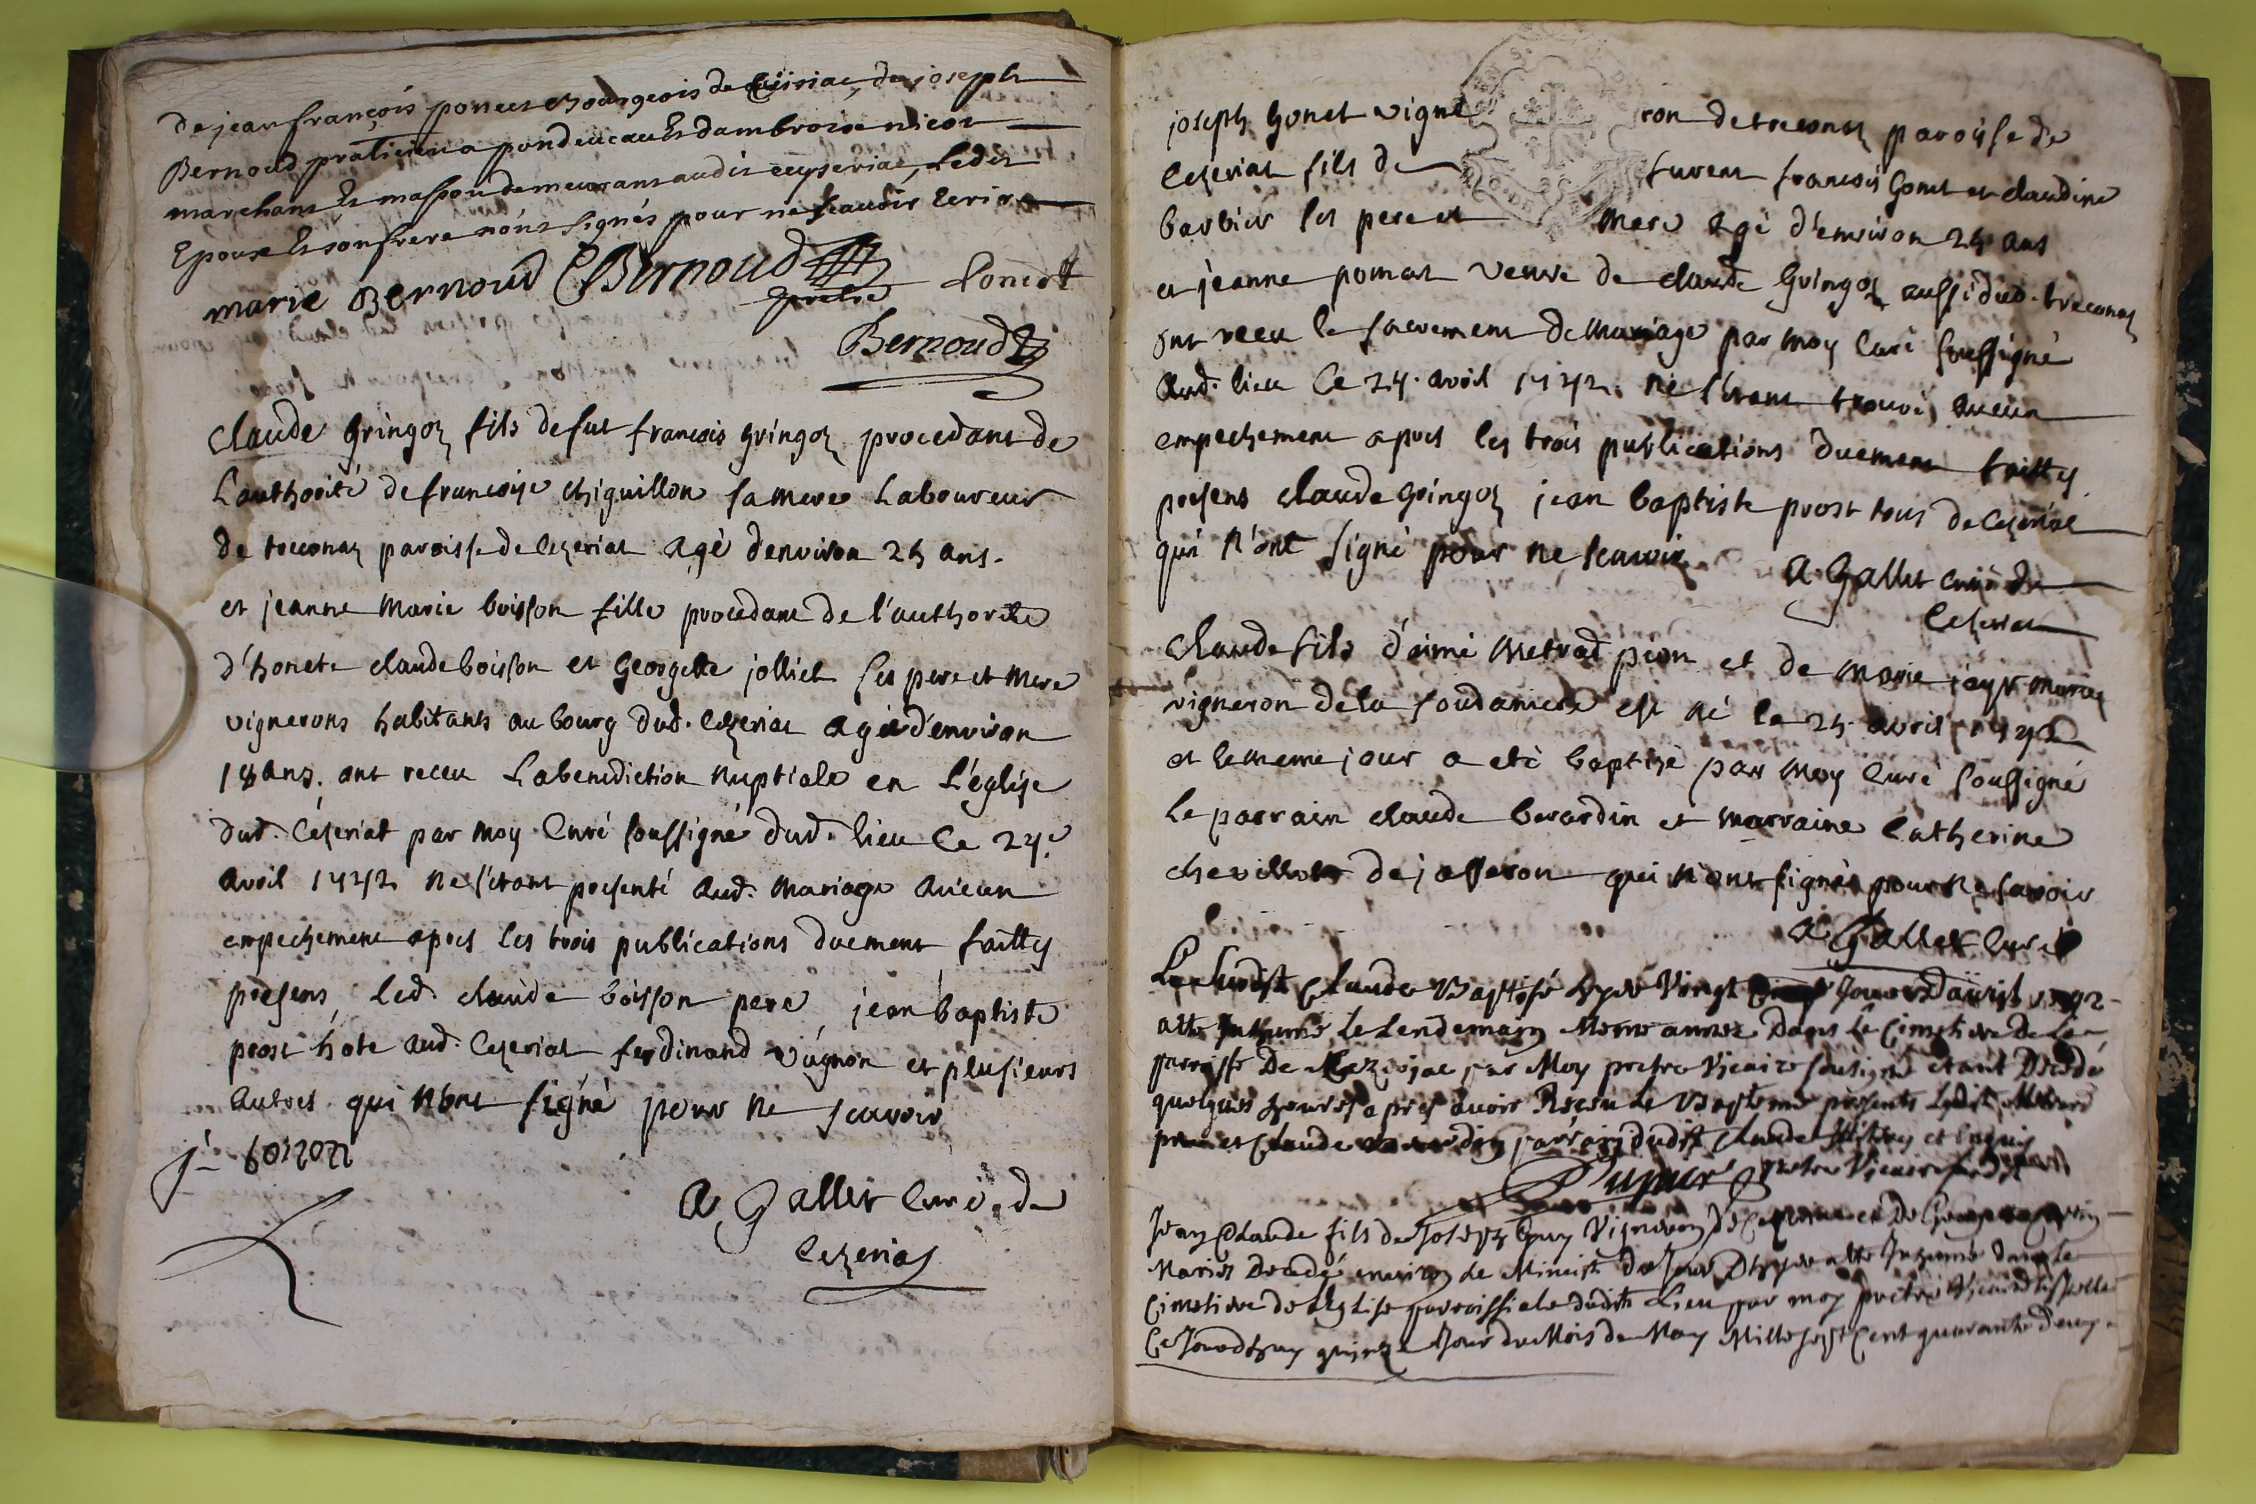 de jean françois poncet Bourgeois de Ceÿsiriac, de joseph
Bernoud praticien a pondeucau Et dambroise nicot
marchant Et masson demeurans audit ceyseriac, Ledit
Epoux Et son frere n'ont signés pour ne scavoir Ecrire
marie Bernoud CBernoud Poncet
pretre
Bernoud
Claude Gringoz fils de fut françois gringoz procedant de
L'authorité de francoise chiguillon sa mere Laboureur
de treconaz paroisse de Cezeriat agé denviron 25 ans.
et jeanne Marie boisson fille procedant de l'authorité
d'honete claude boisson et Georgette jolliet ses pere et Mere
vignerons habitants au bourg dud. Cezeriat agée d'environ
18 ans. ont receu La benediction Nuptiale en L'église
dud. Cézeriat par moy Curé soussigné dud. lieu Ce 24.e
avril 1742 Ne s'étant presenté aud. Mariage Aucun
empechement apres les trois publications duement faittes
presens, led. claude boisson pere, jean baptiste
prost hote aud. Cezeriat ferdinand vugnon et plusieurs
autres qui N'ont signé pour Ne scavoir
j- boizon
A Gallet Curé de
Cezeriat
joseph Gonet vigneron de treconaz paroisse de
Cezeriat fils de furent francois Gonet et claudine
barbier ses pere et Mere agé d'environ 25 ans
et jeanne poncet veuve de claude Gringoz aussi dud. treconaz
ont receu le sacrement de Mariage par moy Curé soussigné
Aud. lieu Ce 24. avril 1742. Ne s'étant trouvé aucun
empechement apres les trois publications duement faittes
presens claude Gringoz jean baptiste prost tous de Cezeriat
qui N'ont signé pour Ne scavoir A Gallet curé de
Cezeriat
Claude fils d'aimé Metrad pion et de Marie jayr
vigneron de la soudaniere est Né le 25. avril 1742
et le meme jour a eté baptizé par moy Curé soussigné
le parrain claude berardin et marraine Catherine
chevillot de jasseron qui N'ont signés pour Ne scavoir
A Gallet Curé
Le susdit Claude Baptisé hyer Vingt jour d'avril 1742
atté Inhumé le Lendemain Meme année Dans Le Cimetiere de La
parroisse De par Moy pretre Vicaire sousigné etant Decedé
quelques heures apres avoir Receu le Bapteme presents Ledit Metrad
pere et Claude parrain dudit Claude
pretre Vicaire
Jean Claude fils de Joseph Vigneron
Mariés Decedé environ le Minuit du jour D'hyer atté Inhumé dans le
Cimetiere de L'Eglise parroissiale dudit Lieu par moy pretre Vicaire
Ce Jourd'huy quinze Jour du Mois de May Mille sept Cent quarante deux